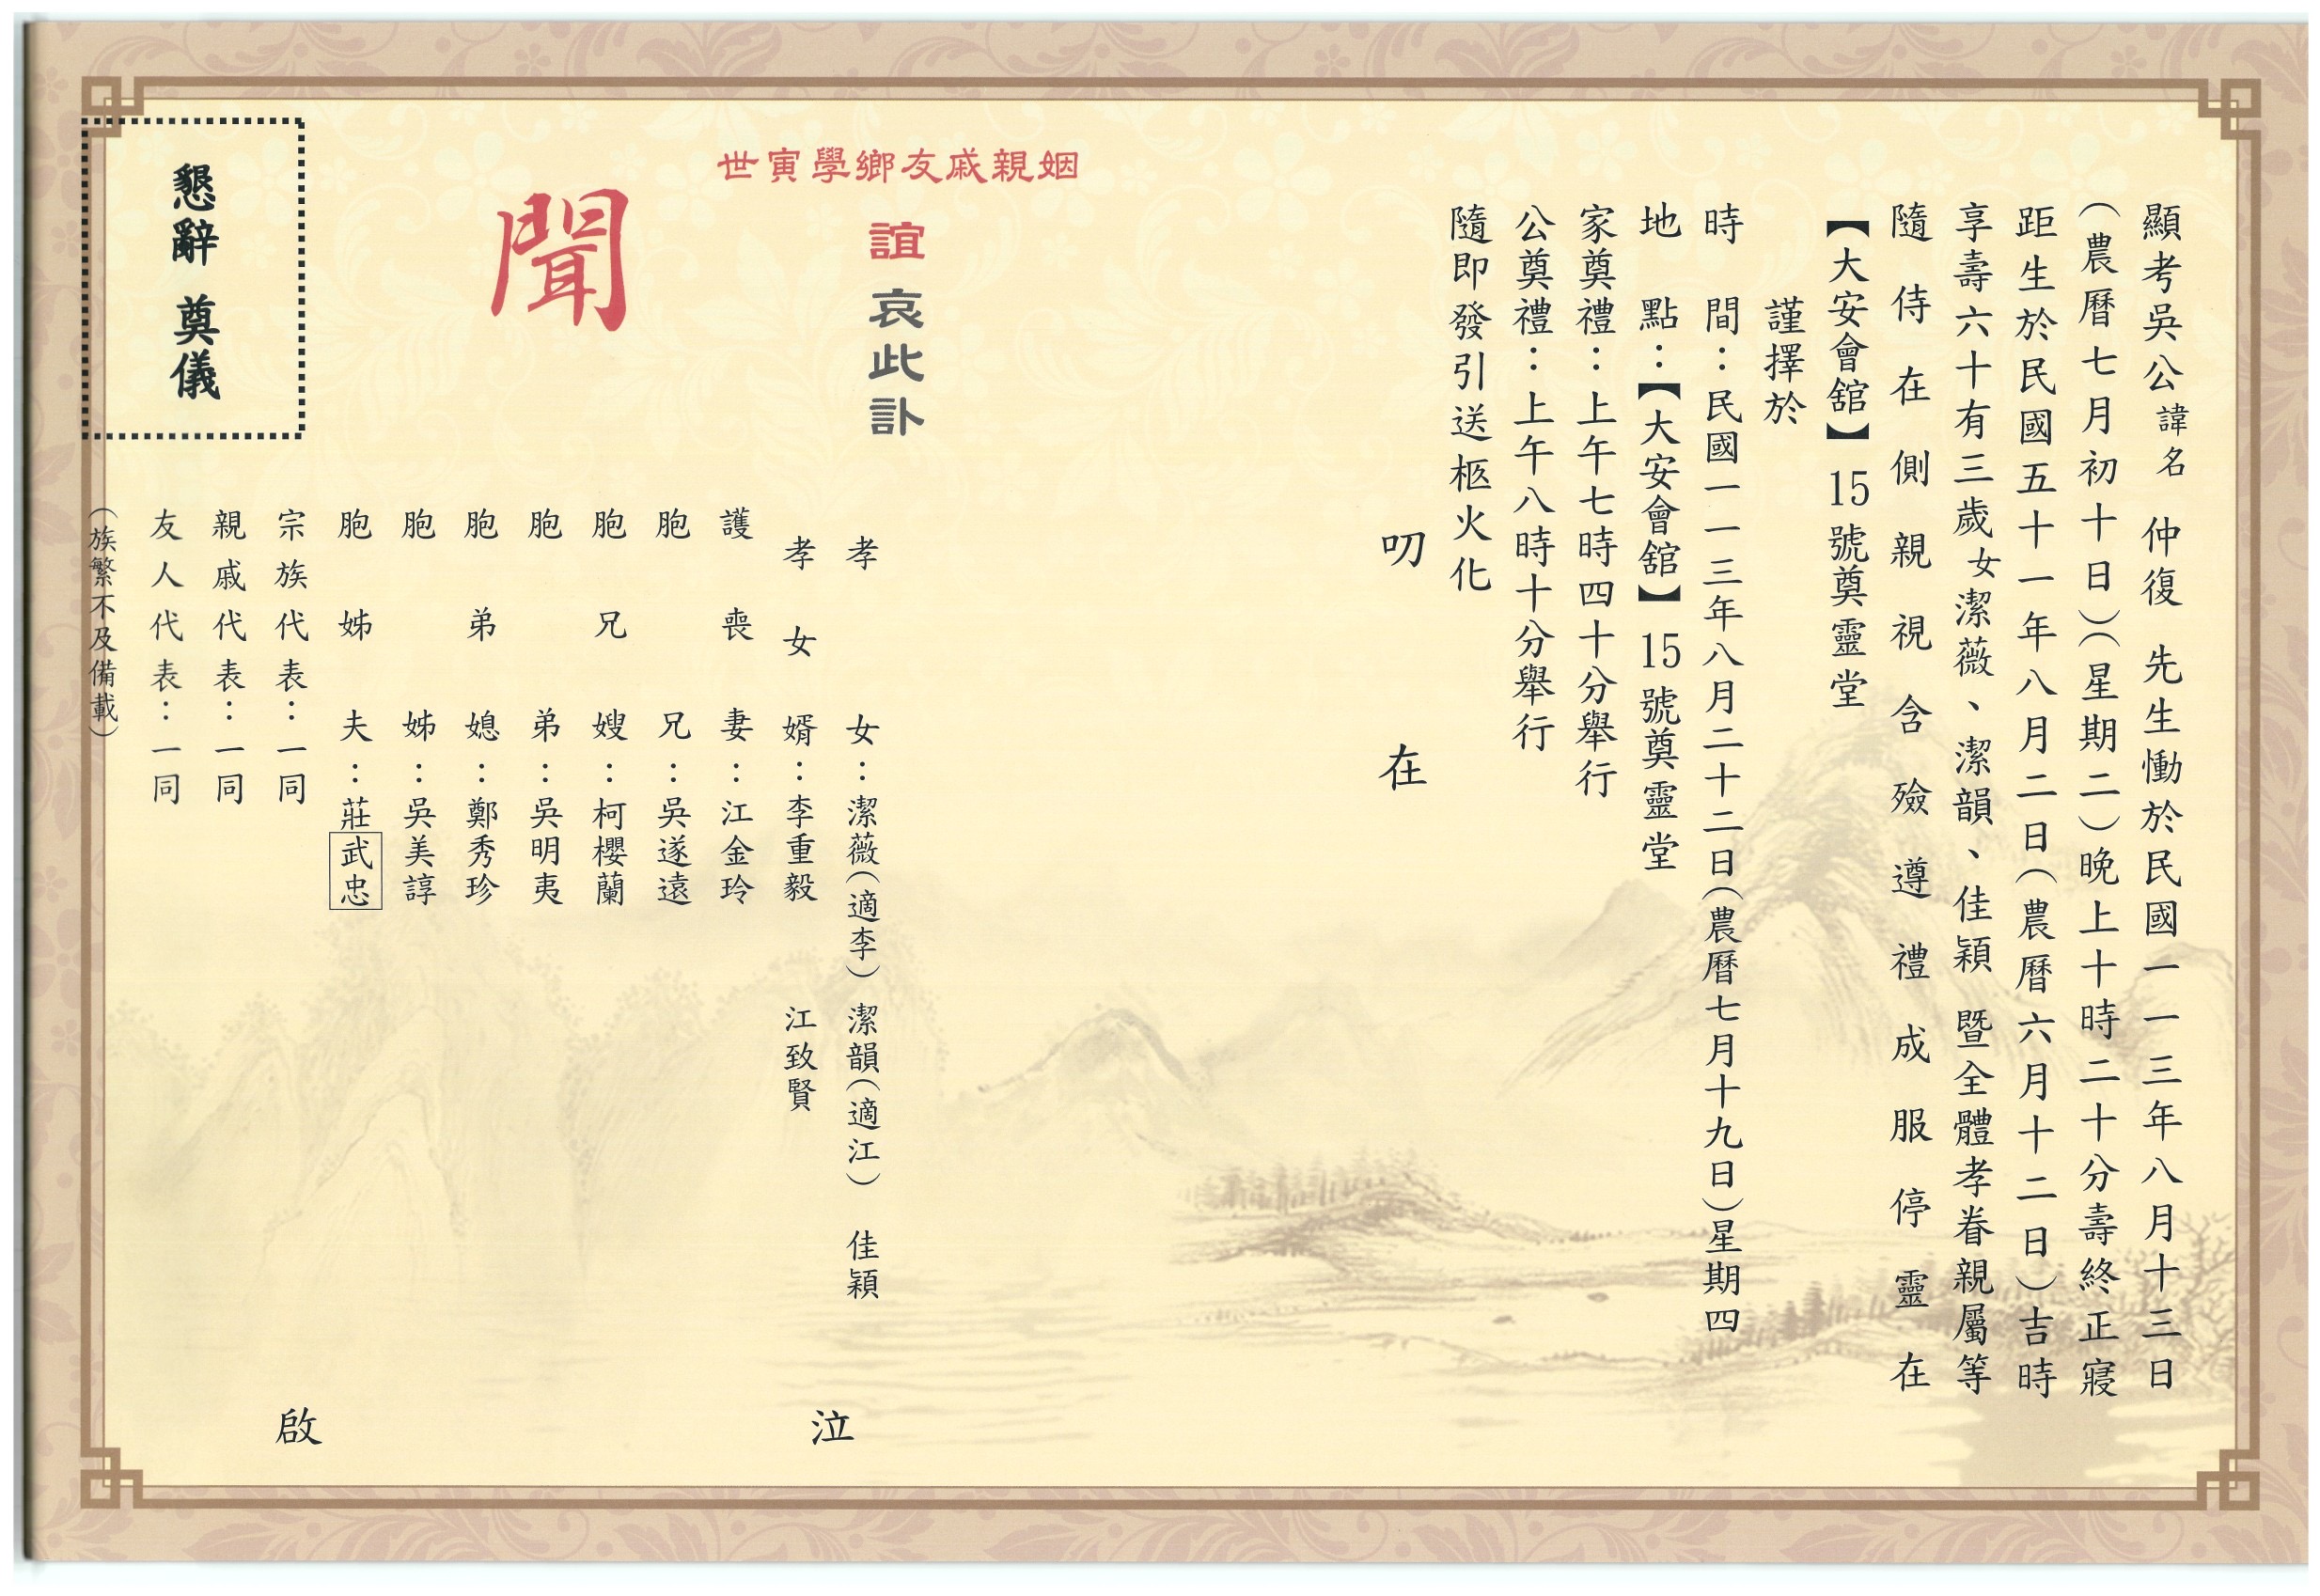 顯考吳公諱名 仲復 先生慟於民國一一三年八月十三日
(農曆七月初十日)(星期二)晚上十時二十分壽終正寢
距生於民國五十一年八月二日(農曆六月十二日)吉時
享壽六十有三歲女潔薇、潔韻、佳穎 暨全體孝眷親屬等
隨侍在側親視含殮遵禮成服停靈在
【大安會館】15號奠靈堂
謹擇於
時 間：民國一一三年八月二十二日(農曆七月十九日)星期四
地 點：【大安會館】15號奠靈堂
家奠禮：上午七時四十分舉行
公奠禮：上午八時十分舉行
隨即發引送柩火化
叨 在
姻親戚友鄉學寅世
誼 哀此訃
聞
孝 女：潔薇(適李) 潔韻(適江) 佳穎
孝女婿：李重毅 江致賢
護喪妻：江金玲
胞 兄：吳遂遠
胞兄嫂：柯櫻蘭
胞 弟：吳明夷
胞弟媳：鄭秀珍
胞 姊：吳美諄
胞姊夫：莊武忠
宗族代表：一同
親戚代表：一同
友人代表：一同
(族繁不及備載)
泣 啟
懇辭 奠儀